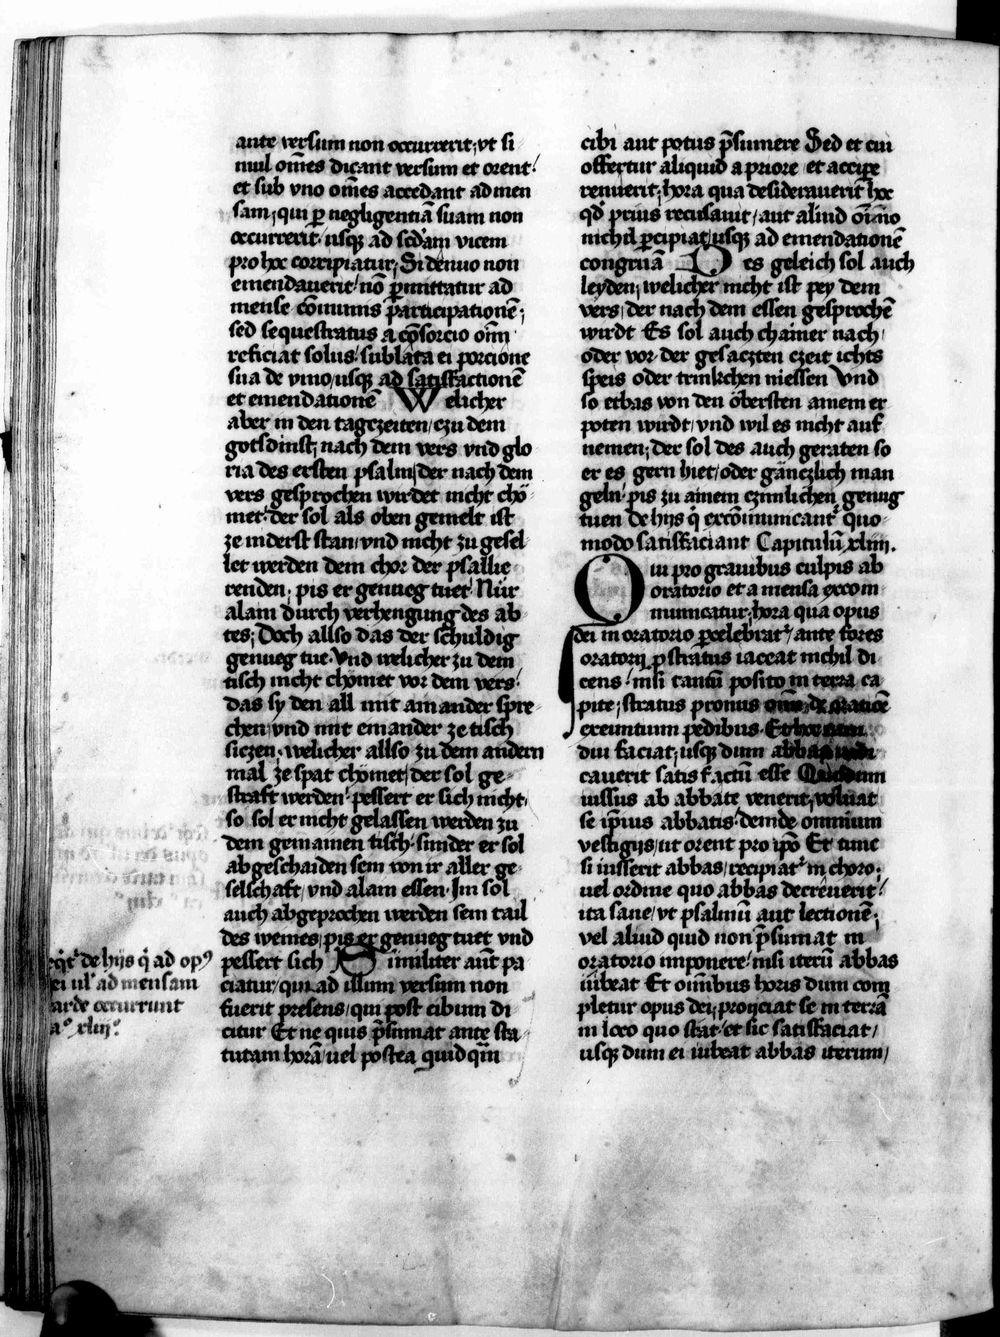 ante versum non occurrerit; vt si
mul om̄es dicant versum et orent
et sub vno om̄es accedant ad men
sam; qui ꝑ negligentiā suam non
occurrerit usqꝫ ad scd'am vicem
pro hoc corripiatur; Si denuo non
emendauerit nō ꝑmittatur ad
mense cōmunis ꝑarticipationē;
sed sequestratus a cōsorcio om̄i
reficiat solus sublata ei porcione
sua de vino/usqꝫ ad satisfactionē
et emendationē Welicher
aber in den tagczeiten/czu dem
gotsdinst; nach dem vers vnd glo
ria des ersten psalm/der nach dem
vers gesprochen wirdet nicht chö
met der sol als oben gemelt ist
ze inderst stan/vnd nicht zu gesel
let werden dem chor der psallie
renden; pis er genueg tuet Nür
alain durch verhengung des ab
tes; Doch allso das der schuldig
genueg tue Vnd welicher zu dem
tisch nicht chömet vor dem vers
das sy den all mit ainander spre
chen/vnd mit einander ze tisch
siczen welicher allso zu dem andern
mal ze spat chömet/der sol ge
strafft werden pessert er sich nicht/
so sol er nicht gelassen werden zu
dem gemainen tisch sunder er sol
abgeschaiden sein von ir aller ge
selschaft/vnd alain essen Im sol
auch abgeprochen werden sein tail
des weines/pis er genueg tuet vnd
pessert sich Similiter aūt pa
ciatur/qui ad illum versum non
fuerit presens/qui post cibum di
citur Et ne quis p̄sumat ante sta
tutam horā/uel postea quidq̄m
eqt' de hijs q̇ ad opꝰ
ei ul' ad mensam
tarde occurrunt
aꝰ xliijꝰ
cibi aut potus p̄sumere Sed et cui
offertur aliquid a priore et accipe
renuerit; hora qua desiderauerit hoc
qd' prius recusauit/aut aliud om̄ino
nichil ꝑcipiat/usqꝫ ad emendationē
congruā Des geleich sol auch
leyden; welicher nicht ist pey dem
vers; der nach dem essen gesprochē
wirdt Es sol auch chainer nach
oder vor der gesaczten czeit ichts
speis oder trinkchen niessen Vnd
so etbas von den öbersten ainem er
poten wirdt/vnd wil es nicht auf
nemen; der sol des auch geraten so
er es gern hiet/oder gänczlich man
geln pis zu ainem czimlichen genug
tuen De hijs q̇ excōmunicant' quo
modo satisfaciant Capitulū xliiii.
Qui pro grauibus culpis ab
oratorio et a mensa excom
municatur; hora qua opus
dei in oratorio ꝑcelebrat'/ante fores
oratorij ꝓstratus iaceat nichil di
cens nisi tantū posito in terra ca
pite; stratus pronus om̄iū de oratiōe
exeuntium pedibus Et hoc tam
diu faciat; usqꝫ dum abbas iudi
cauerit satisfactū esse Qui dum
iussus ab abbate venerit; voluat
se ip̄ius abbatis deinde omnium
vestigijs/ut orent pro ip̄o Et tunc
si iusserit abbas/recipiat' in choro;
uel ordine quo abbas decreuerit
ita sane/vt psalmū aut lectionē;
vel aliud quid non p̄sumat in
oratorio imponere nisi iterū abbas
iubeat Et om̄ibus horis dum com
pletur opus dei; proijciat se in terrā
in loco quo stat et sic satisfaciat/
usqꝫ dum ei iubeat abbas iterum/